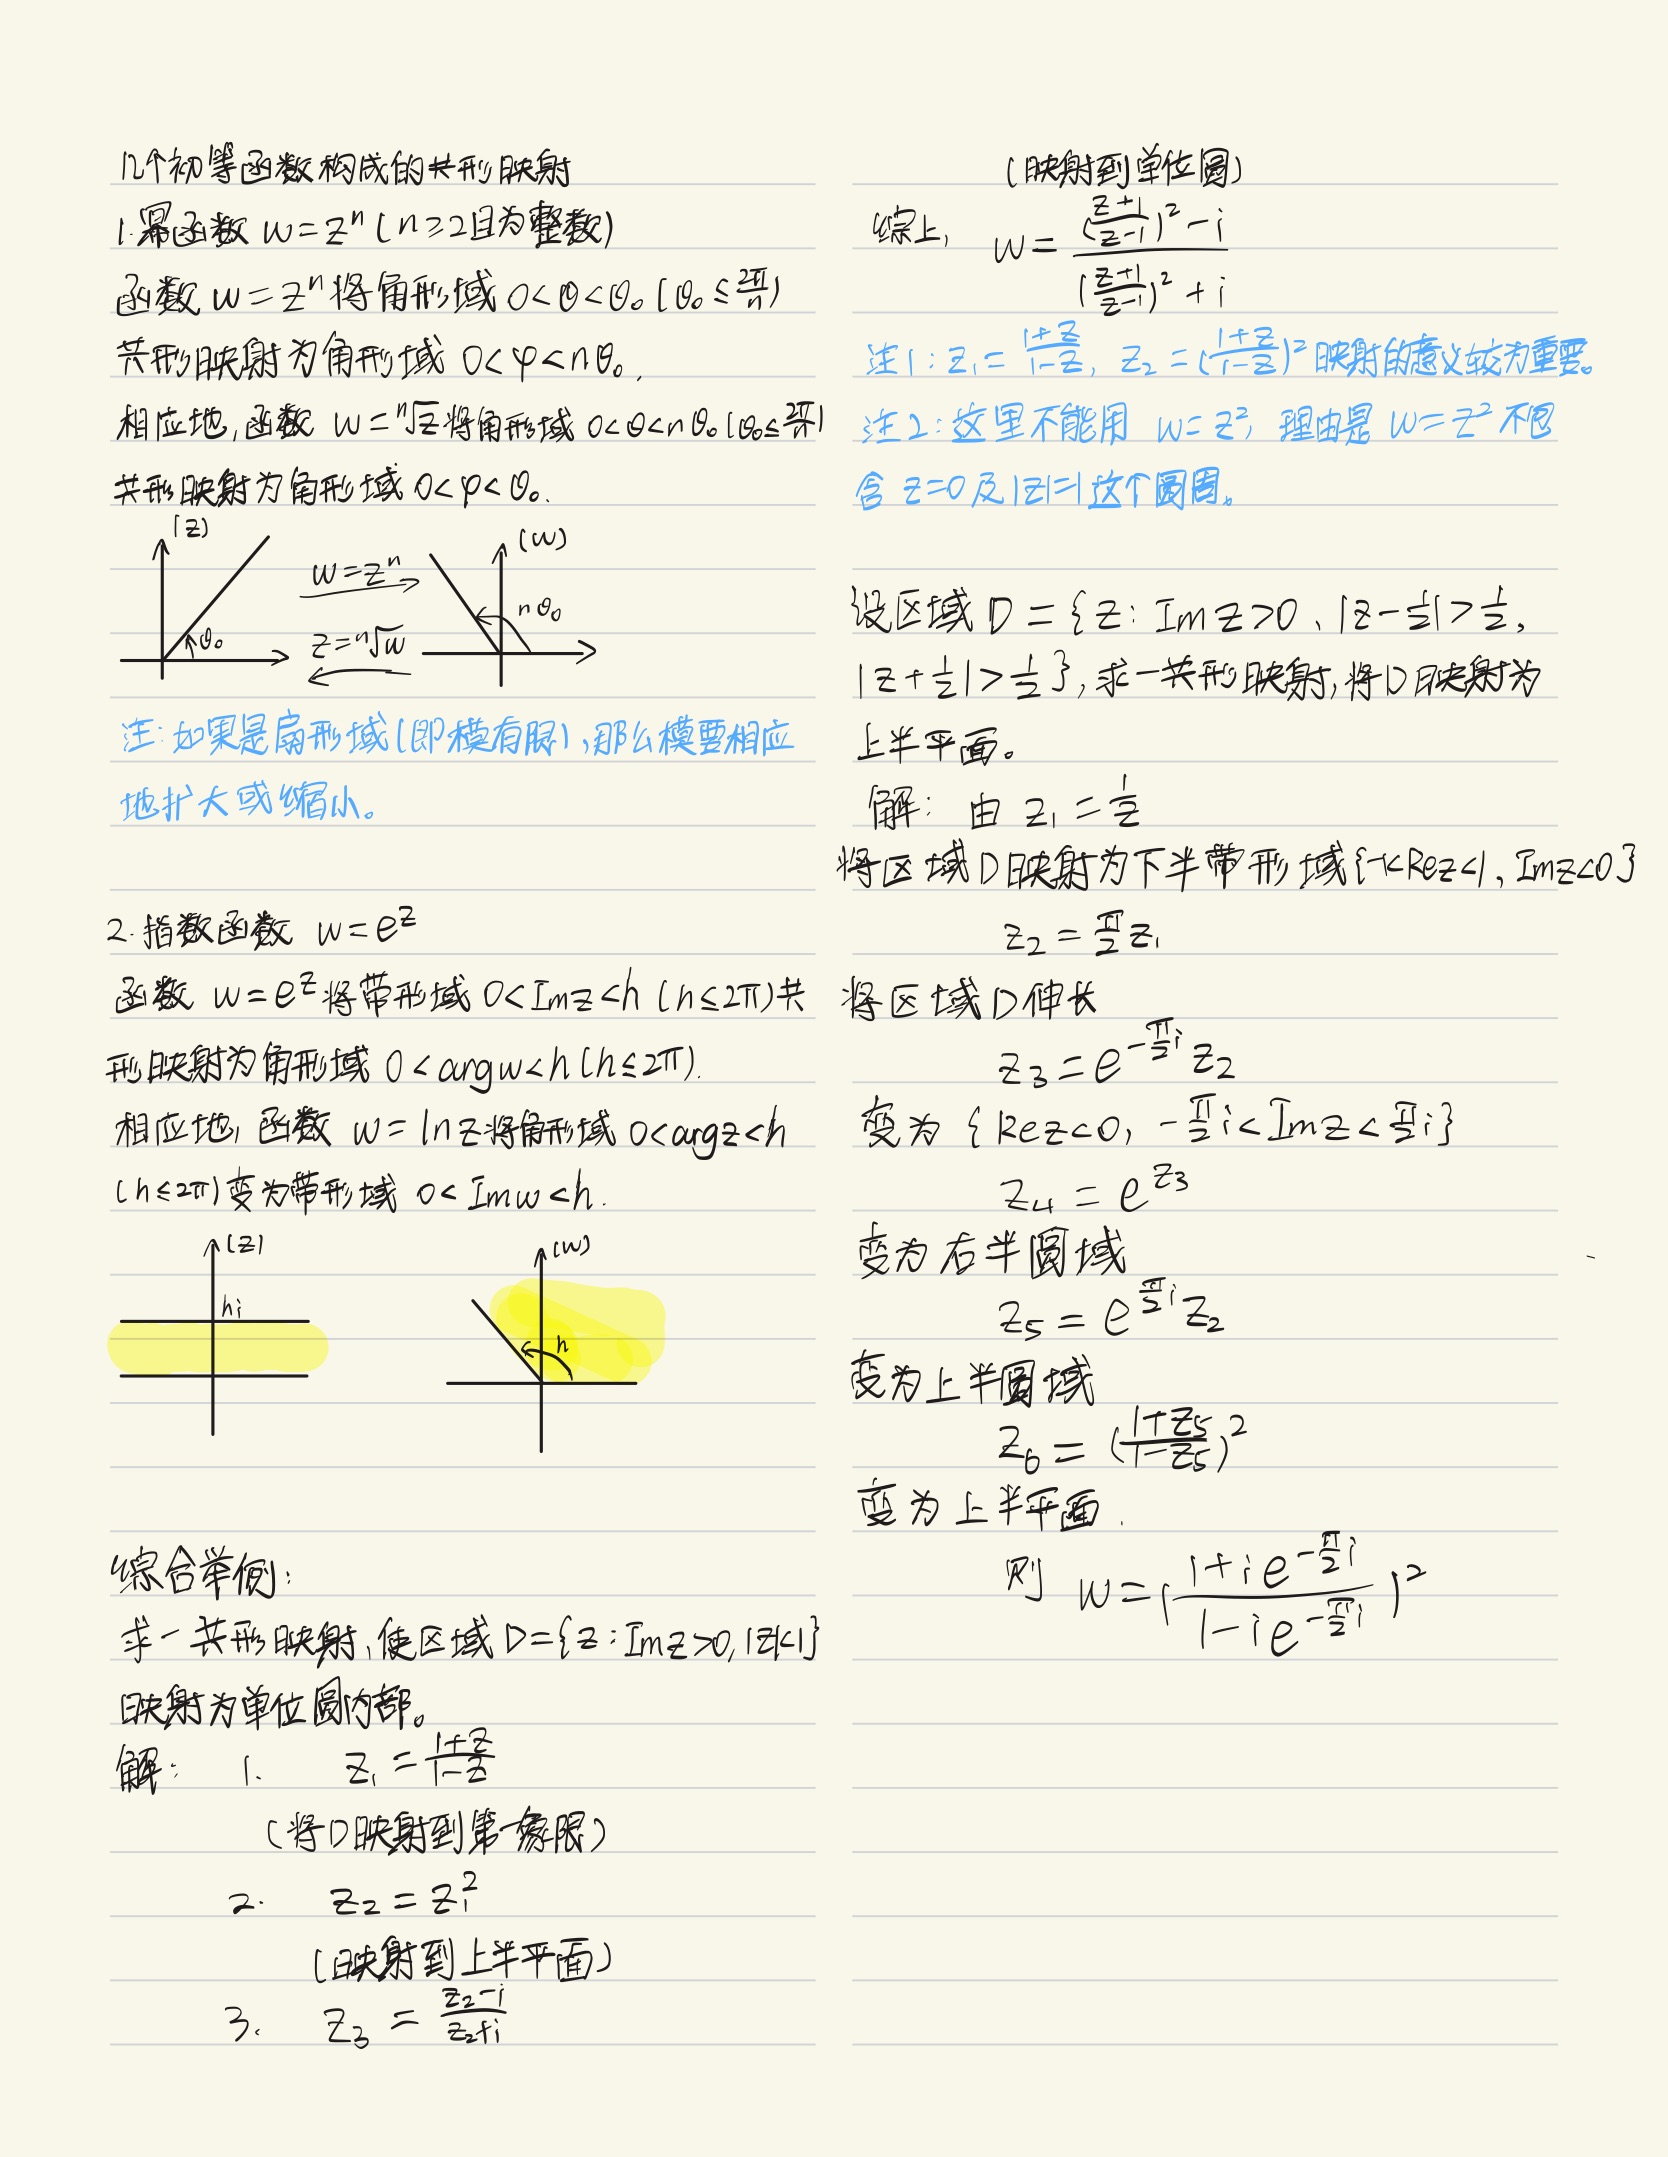 几个初等函数构成的共形映射
1.幂函数 w=zⁿ(n≥2且为整数)
函数 w=zⁿ将角形域 0<θ<θ₀(θ₀≤2π/n)
共形映射为角形域 0<φ<nθ₀.
相应地,函数 w=ⁿ√z将角形域 0<θ<nθ₀(θ₀≤2π/n)
共形映射为角形域 0<φ<θ₀.
(z)
(w)
w=zⁿ
θ₀
nθ₀
z=ⁿ√w
注:如果是扇形域(即模有限),那么模要相应
地扩大或缩小。
2.指数函数 w=e^z
函数 w=e^z将带形域 0<Imz<h (h≤2π)共
形映射为角形域 0<argw<h(h≤2π).
相应地,函数 w=lnz将角形域 0<argz<h
(h≤2π)变为带形域 0<Imw<h.
(z)
(w)
hi
h
综合举例:
求一共形映射,使区域D={z:Imz>0,|z|<1}
映射为单位圆内部。
解: 1. z₁=(1+z)/(1-z)
(将D映射到第一象限)
2. z₂=z₁²
(映射到上半平面)
3. z₃=(z₂-i)/(z₂+i)
(映射到单位圆)
综上, w=(((z+1)/(z-1))²-i)/(((z+1)/(z-1))²+i)
注1:z₁=(1+z)/(1-z), z₂=((1+z)/(1-z))²映射的意义较为重要。
注2:这里不能用 w=z²,理由是 w=z²不包
含 z=0及|z|=1这个圆周。
设区域D={z:Imz>0、|z-1/2|>1/2,
|z+1/2|>1/2},求一共形映射,将D映射为
上半平面。
解: 由 z₁=1/z
将区域D映射为下半带形域{-1<Rez<1、Imz<0}
z₂=(π/2)z₁
将区域D伸长
z₃=e^(-(π/2)i)z₂
变为{Rez<0, -(π/2)i<Imz<(π/2)i}
z₄=e^(z₃)
变为右半圆域
z₅=e^((π/2)i)z₂
变为上半圆域
z₆=((1+z₅)/(1-z₅))²
变为上半平面.
则 w=((1+ie^(-(π/2)i))/(1-ie^(-(π/2)i)))²